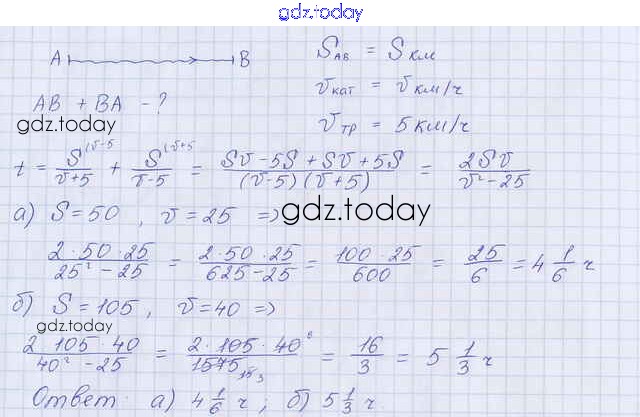 gdz.today
A B
S_AB = S км
v_кат = v км/ч
AB + BA - ?
gdz.today
v_тр = 5 км/ч
t = S^(v-5/(v+5) + S^(v+5/(v-5) = (Sv - 5S + Sv + 5S)/((v-5)(v+5)) = 2Sv/(v² - 25)
а) S = 50, v = 25 =>
gdz.today
(2·50·25)/(25² - 25) = (2·50·25)/(625 - 25) = (100·25)/600 = 25/6 = 4 1/6 ч
б) S = 105, v = 40 =>
gdz.today
(2·105·40)/(40² - 25) = (2·105·40⁸)/(1575 15 3) = 16/3 = 5 1/3 ч
Ответ: а) 4 1/6 ч; б) 5 1/3 ч.